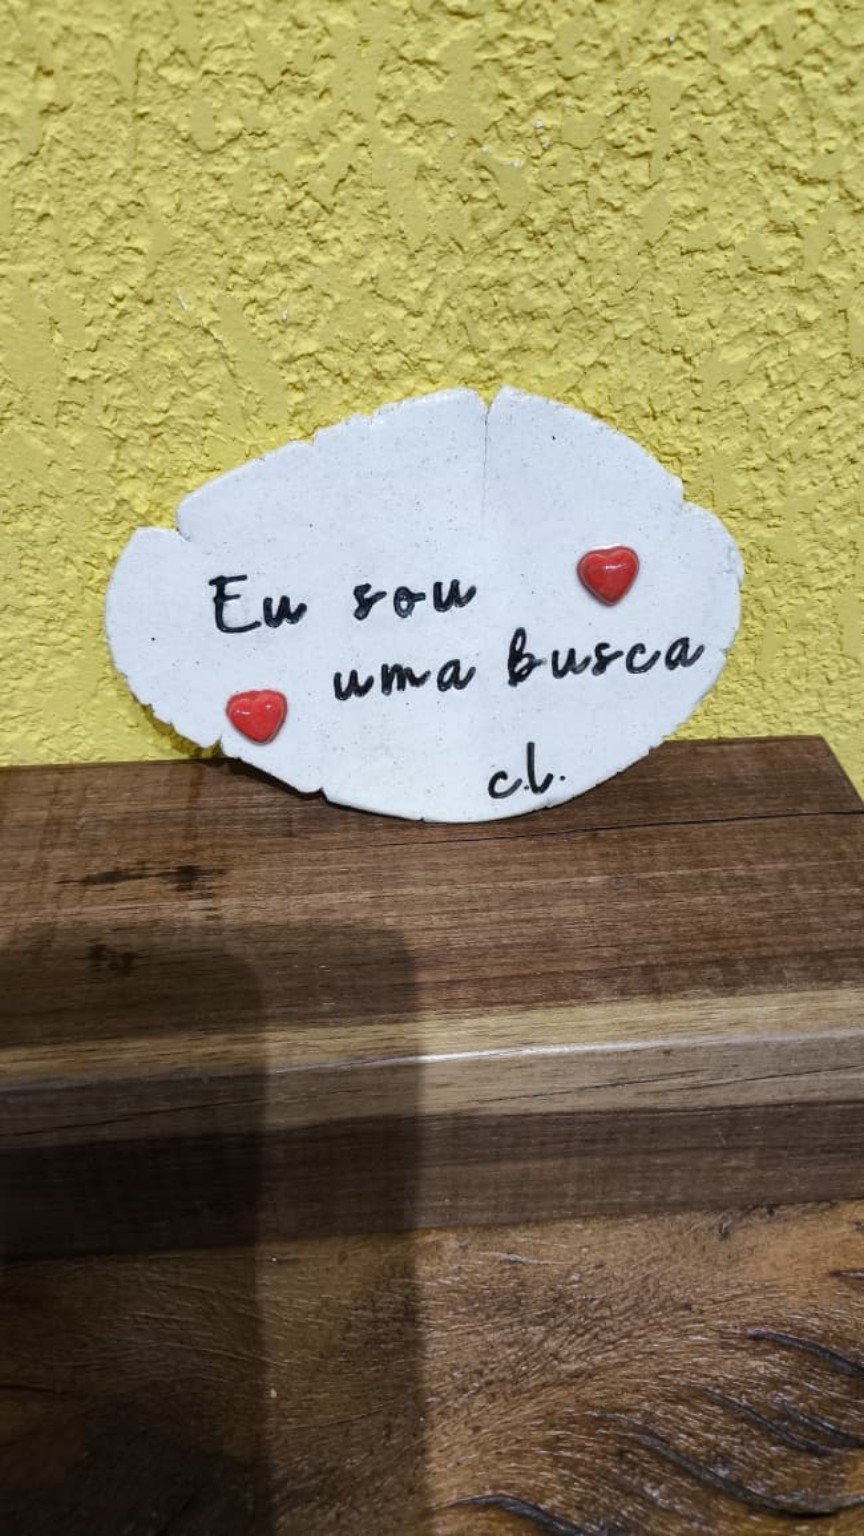 Eu sou
uma busca
c.l.